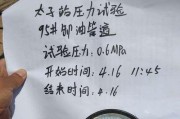 太子的压力试验
95#卸油管道
试验压力:0.6MPa
开始时间:4.16 11:45
结束时间:4.16